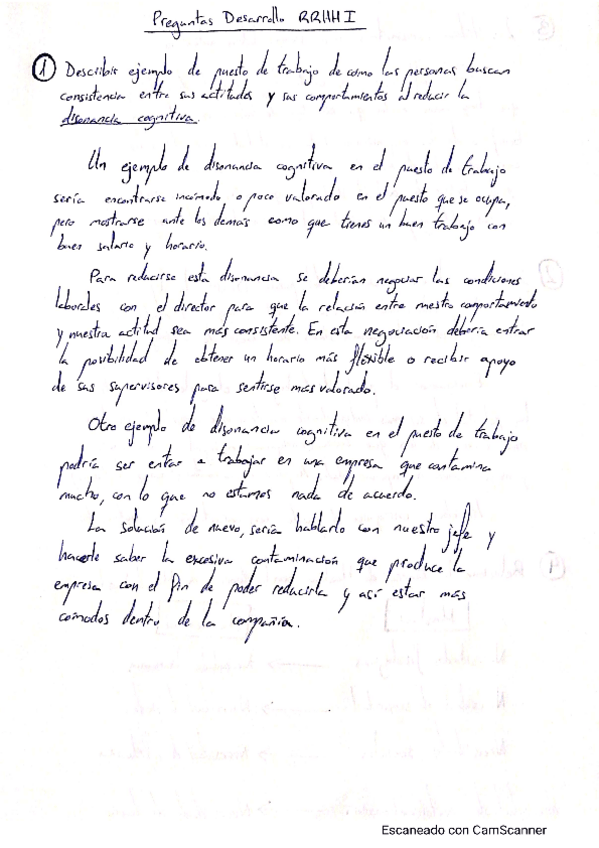 Preguntas Desarrollo RRHH I
① Describir ejemplo de puesto de trabajo de como las personas buscan
consistencia entre sus actitudes y sus comportamientos al reducir la
disonancia cognitiva.
Un ejemplo de disonancia cognitiva en el puesto de trabajo
sería encontrarse incómodo, o poco valorado en el puesto que se ocupa,
pero mostrarse ante los demás como que tienes un buen trabajo con
buen salario y horario.
Para reducirse esta disonancia se deberían negociar las condiciones
laborales con el director para que la relación entre nuestro comportamiento
y nuestra actitud sea más consistente. En esta negociación debería entrar
la posibilidad de obtener un horario más flexible o recibir apoyo
de sus supervisores para sentirse mas valorado.
Otro ejemplo de disonancia cognitiva en el puesto de trabajo
podría ser entrar a trabajar en una empresa que contamina
mucho, con lo que no estamos nada de acuerdo.
La solución de nuevo, sería hablarlo con nuestro jefe y
hacerle saber la excesiva contaminación que produce la
empresa con el fin de poder reducirla y así estar más
cómodos dentro de la compañía.
Escaneado con CamScanner